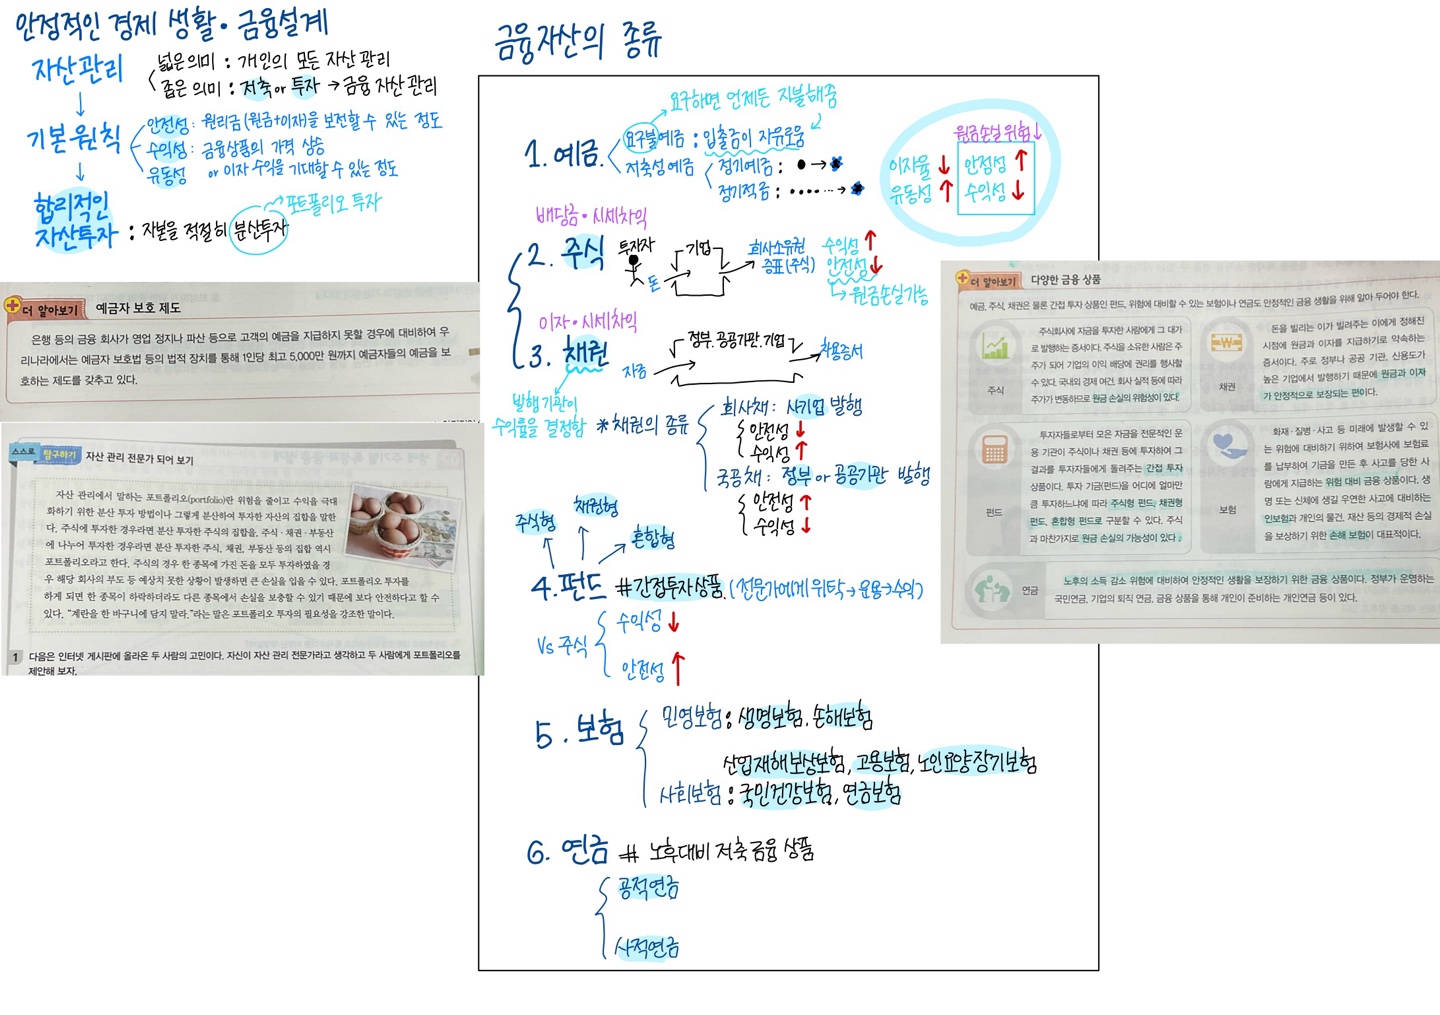 안정적인 경제 생활 · 금융설계
자산관리
넓은의미 : 개인의 모든 자산 관리
좁은 의미 : 저축 or 투자 → 금융 자산 관리
↓
기본원칙
안전성 : 원리금(원금+이자)을 보전할 수 있는 정도
수익성 : 금융상품의 가격 상승
or 이자 수익을 기대할 수 있는 정도
유동성
↓
합리적인
자산투자 : 자본을 적절히 분산투자
포트폴리오 투자
더 알아보기 예금자 보호 제도
은행 등의 금융 회사가 영업 정지나 파산 등으로 고객의 예금을 지급하지 못할 경우에 대비하여 우
리나라에서는 예금자 보호법 등의 법적 장치를 통해 1인당 최고 5,000만 원까지 예금자들의 예금을 보
호하는 제도를 갖추고 있다.
스스로 탐구하기 자산 관리 전문가 되어 보기
자산 관리에서 말하는 포트폴리오(portfolio)란 위험을 줄이고 수익을 극대
화하기 위한 분산 투자 방법이나 그렇게 분산하여 투자한 자산의 집합을 말한
다. 주식에 투자한 경우라면 분산 투자한 주식의 집합을, 주식 · 채권 · 부동산
에 나누어 투자한 경우라면 분산 투자한 주식, 채권, 부동산 등의 집합 역시
포트폴리오라고 한다. 주식의 경우 한 종목에 가진 돈을 모두 투자하였을 경
우 해당 회사의 부도 등 예상치 못한 상황이 발생하면 큰 손실을 입을 수 있다. 포트폴리오 투자를
하게 되면 한 종목이 하락하더라도 다른 종목에서 손실을 보충할 수 있기 때문에 보다 안전하다고 할 수
있다. "계란을 한 바구니에 담지 말라."라는 말은 포트폴리오 투자의 필요성을 강조한 말이다.
1 다음은 인터넷 게시판에 올라온 두 사람의 고민이다. 자신이 자산 관리 전문가라고 생각하고 두 사람에게 포트폴리오를
제안해 보자.
금융자산의 종류
요구하면 언제든 지불해줌
1. 예금
요구불예금 : 입출금이 자유로움
저축성예금
정기예금 : ● → ✱
정기적금 : ····· → ✱
원금손실위험 ↓
이자율 ↓ 안정성 ↑
유동성 ↑ 수익성 ↓
배당금 · 시세차익
2. 주식
투자자
돈
기업
회사소유권
증표(주식)
수익성 ↑
안전성 ↓
↳ 원금손실가능
이자 · 시세차익
3. 채권
자금
정부. 공공기관. 기업
차용증서
발행기관이
수익률을 결정함
*채권의 종류
회사채 : 사기업 발행
안전성 ↓
수익성 ↑
국공채 : 정부 or 공공기관 발행
안전성 ↑
수익성 ↓
주식형
채권형
혼합형
4. 펀드 #간접투자상품. (전문가에게 위탁→운용→수익)
Vs 주식
수익성 ↓
안전성 ↑
5. 보험
민영보험 : 생명보험. 손해보험
산업재해보상보험, 고용보험, 노인요양장기보험
사회보험 : 국민건강보험, 연금보험
6. 연금 # 노후대비 저축금융상품
공적연금
사적연금
더 알아보기 다양한 금융 상품
예금, 주식, 채권은 물론 간접 투자 상품인 펀드, 위험에 대비할 수 있는 보험이나 연금도 안정적인 금융 생활을 위해 알아 두어야 한다.
주식
주식회사에 자금을 투자한 사람에게 그 대가
로 발행하는 증서이다. 주식을 소유한 사람은 주
주가 되어 기업의 이익 배당에 권리를 행사할
수 있다. 국내외 경제 여건, 회사 실적 등에 따라
주가가 변동하므로 원금 손실의 위험성이 있다.
채권
돈을 빌리는 이가 빌려주는 이에게 정해진
시점에 원금과 이자를 지급하기로 약속하는
증서이다. 주로 정부나 공공 기관, 신용도가
높은 기업에서 발행하기 때문에 원금과 이자
가 안정적으로 보장되는 편이다.
펀드
투자자들로부터 모은 자금을 전문적인 운
용 기관이 주식이나 채권 등에 투자하여 그
결과를 투자자들에게 돌려주는 간접 투자
상품이다. 투자 기금(펀드)을 어디에 얼마만
큼 투자하느냐에 따라 주식형 펀드, 채권형
펀드, 혼합형 펀드로 구분할 수 있다. 주식
과 마찬가지로 원금 손실의 가능성이 있다.
보험
화재 · 질병 · 사고 등 미래에 발생할 수 있
는 위험에 대비하기 위하여 보험사에 보험료
를 납부하여 기금을 만든 후 사고를 당한 사
람에게 지급하는 위험 대비 금융 상품이다. 생
명 또는 신체에 생길 우연한 사고에 대비하는
인보험과 개인의 물건, 재산 등의 경제적 손실
을 보상하기 위한 손해 보험이 대표적이다.
연금
노후의 소득 감소 위험에 대비하여 안정적인 생활을 보장하기 위한 금융 상품이다. 정부가 운영하는
국민연금, 기업의 퇴직 연금, 금융 상품을 통해 개인이 준비하는 개인연금 등이 있다.